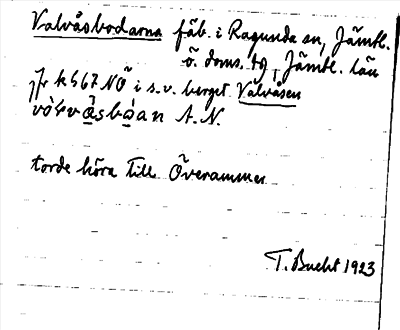 Valvåsbodarna fäb. i Ragunda sn, Jämtl.
ö. doms. tg, Jämtl. län
Jfr k 567 NÖ i s.v. berget Välvåsen
A. N.
torde höra till Överammer
T. Bucht 1923